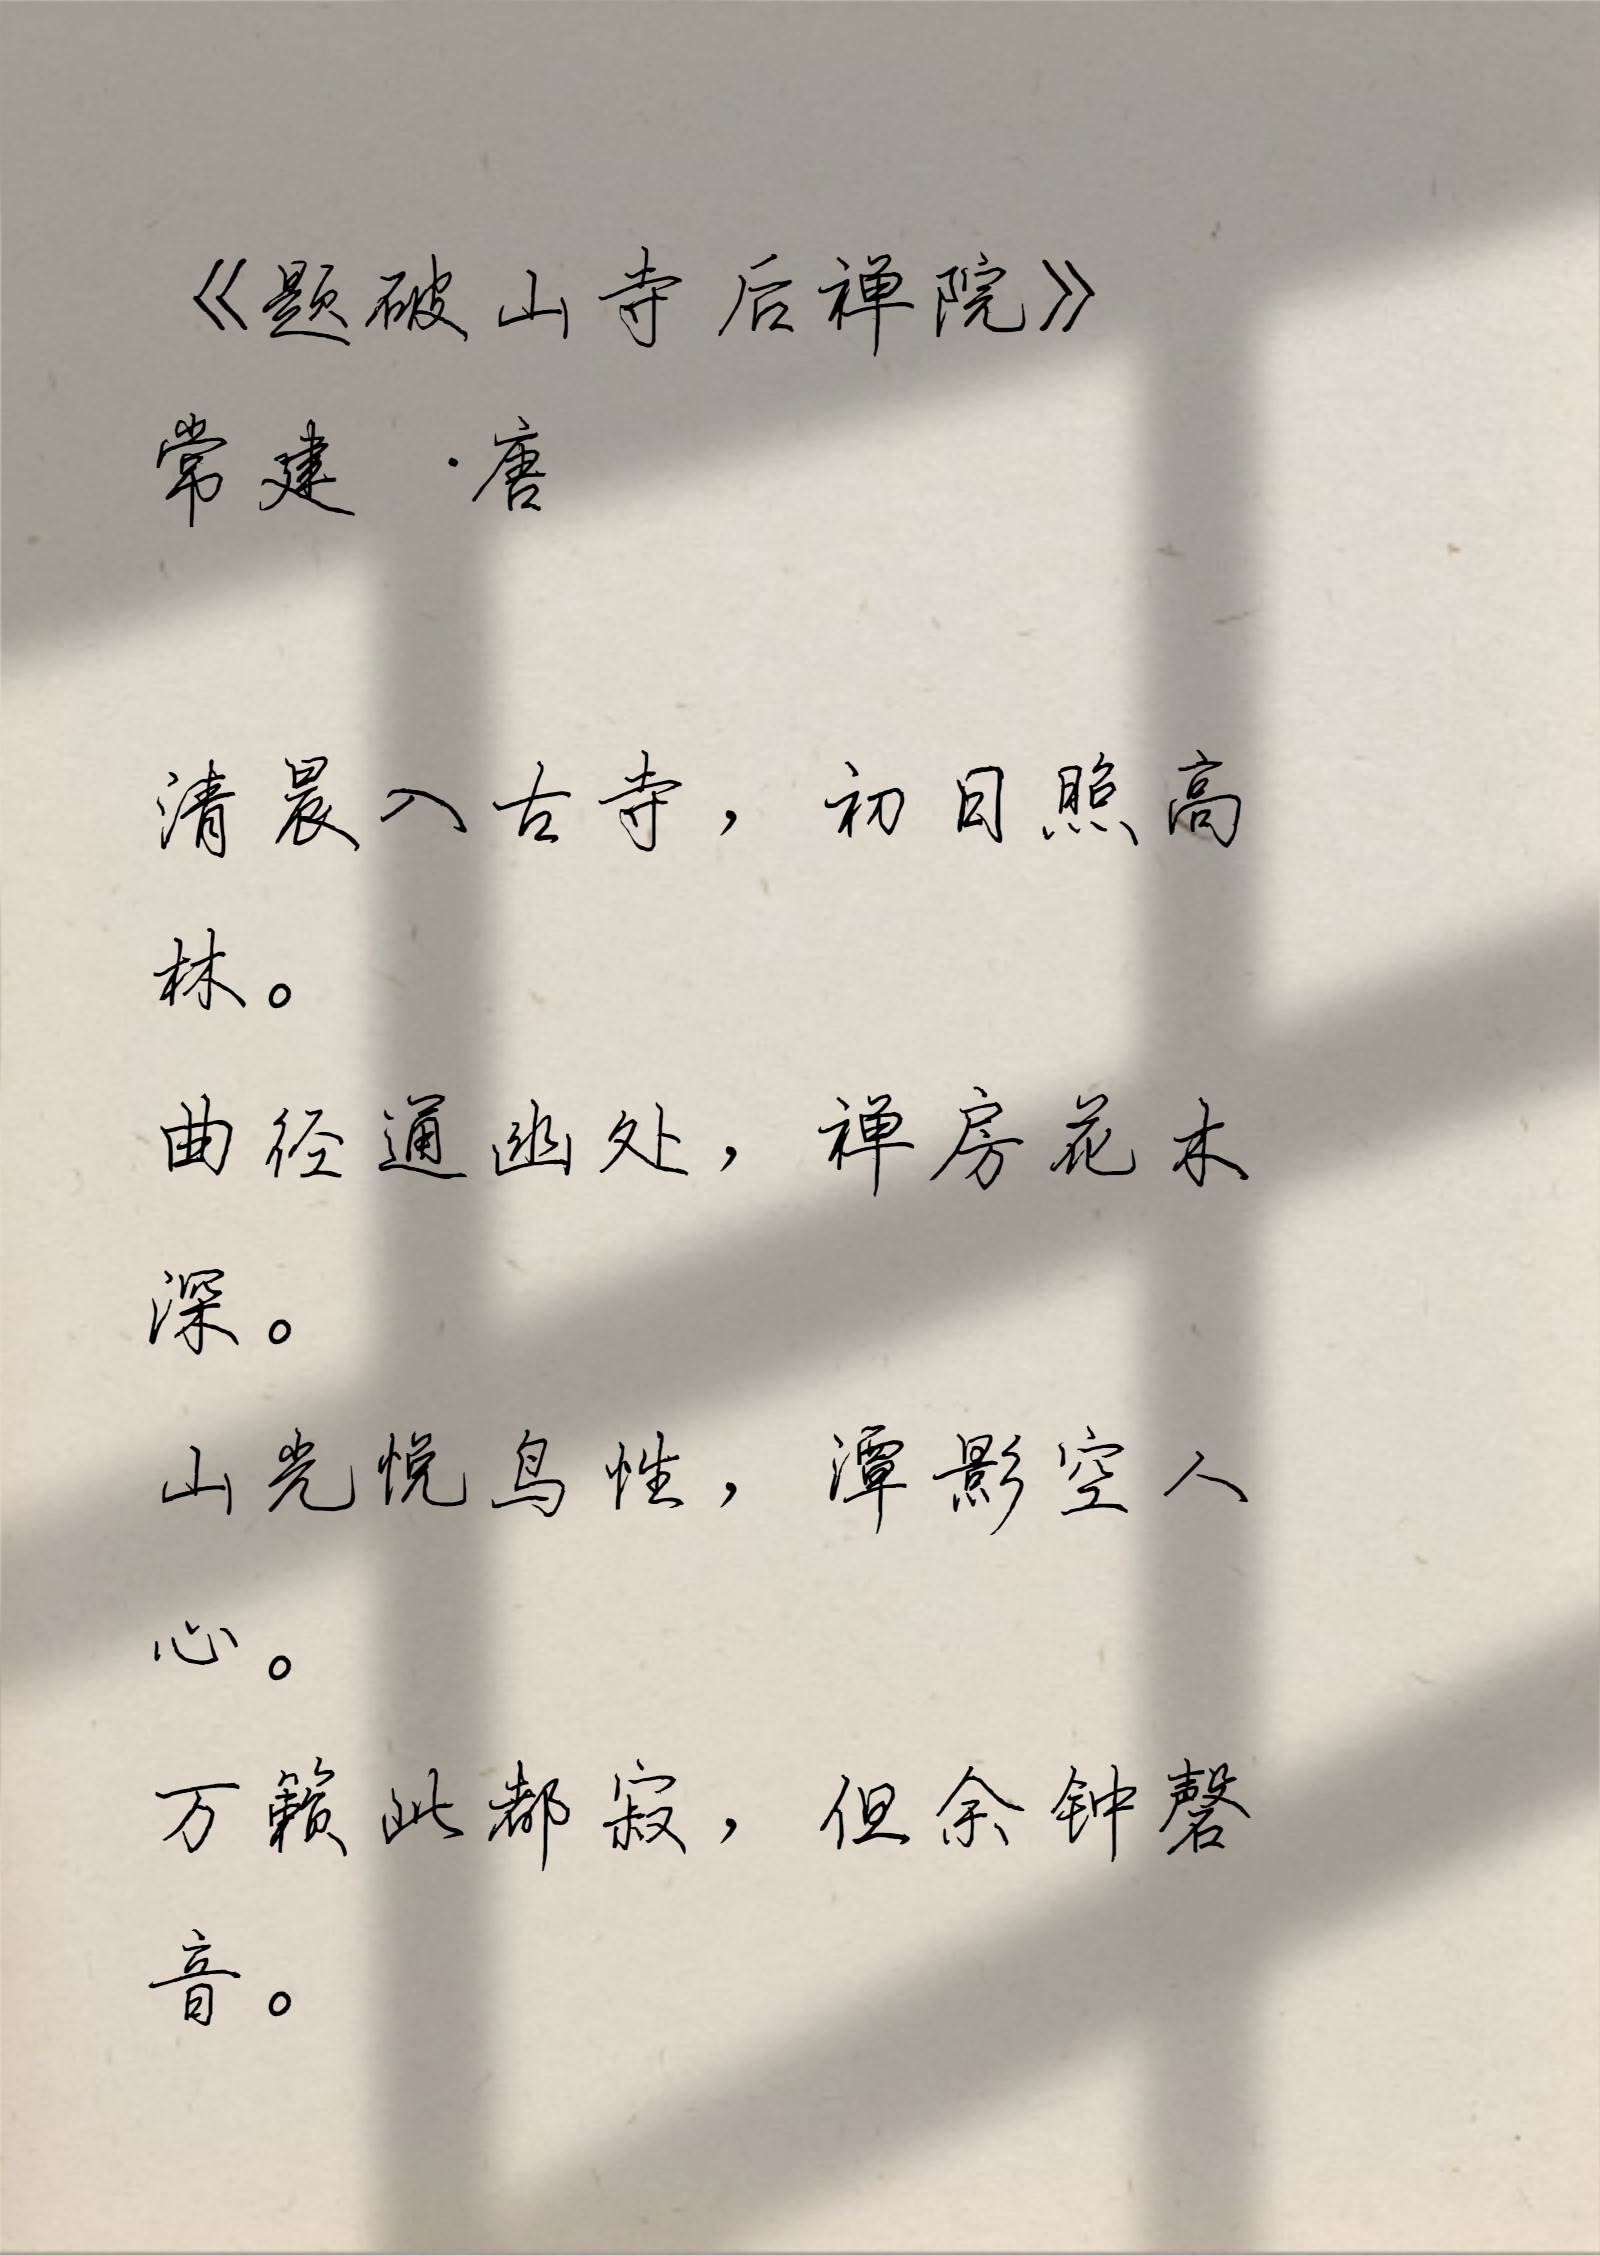 《题破山寺后禅院》
常建 ·唐
清晨入古寺，初日照高
林。
曲径通幽处，禅房花木
深。
山光悦鸟性，潭影空人
心。
万籁此都寂，但余钟磬
音。